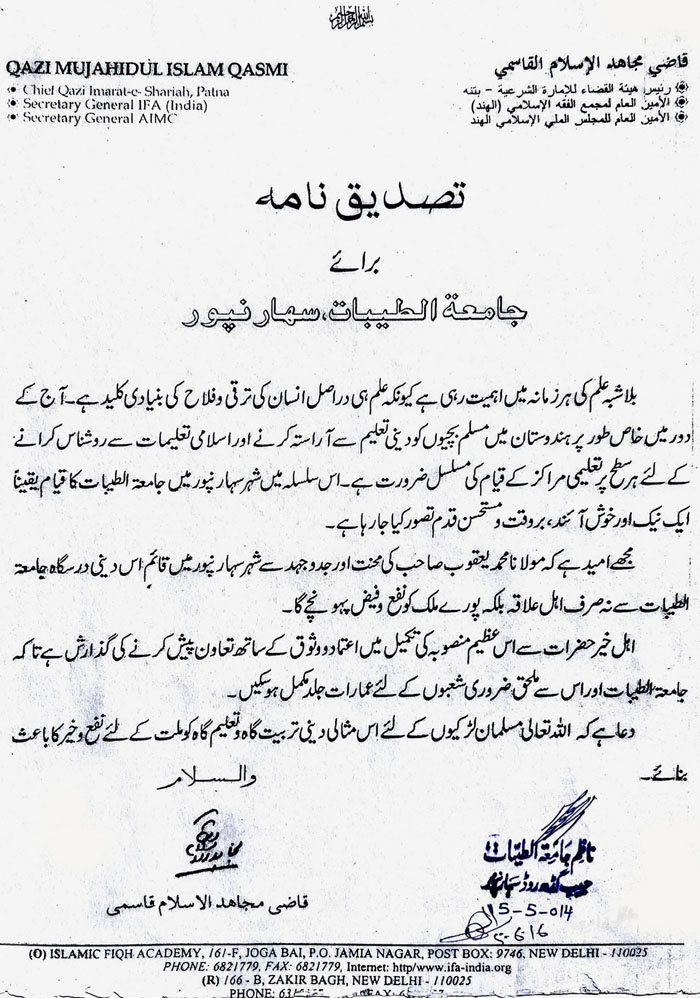 بسم الله الرحمن الرحيم
QAZI MUJAHIDUL ISLAM QASMI
Chief Qazi Imarat-e-Shariah, Patna
Secretary General IFA (India)
Secretary General AIMC
قاضي مجاهد الإسلام القاسمي
رئيس هيئة القضاء للإمارة الشرعية - بتنه
الأمين العام لمجمع الفقه الإسلامي (الهند)
الأمين العام للمجلس الملي الإسلامي الهند
تصدیق نامہ
برائے
جامعة الطیبات، سهارنپور
بلاشبہ علم کی ہر زمانہ میں اہمیت رہی ہے کیونکہ علم ہی دراصل انسان کی ترقی وفلاح کی بنیادی کلید ہے۔ آج کے
دور میں خاص طور پر ہندوستان میں مسلم بچیوں کو دینی تعلیم سے آراستہ کرنے اور اسلامی تعلیمات سے روشناس کرانے
کے لئے ہر سطح پر تعلیمی مراکز کے قیام کی مسلسل ضرورت ہے۔ اس سلسلہ میں شہر سہارنپور میں جامعۃ الطیبات کا قیام یقیناً
ایک نیک اور خوش آئند، بروقت و مستحسن قدم تصور کیا جارہا ہے۔
مجھے امید ہے کہ مولانا محمد یعقوب صاحب کی محنت اور جدوجہد سے شہر سہارنپور میں قائم اس دینی درسگاہ جامعۃ
الطیبات سے نہ صرف اہل علاقہ بلکہ پورے ملک کو نفع و فیض پہونچے گا۔
اہل خیر حضرات سے اس عظیم منصوبہ کی تکمیل میں اعتماد ووثوق کے ساتھ تعاون پیش کرنے کی گذارش ہے تاکہ
جامعۃ الطیبات اور اس سے ملحق ضروری شعبوں کے لئے عمارات جلد مکمل ہوسکیں۔
دعا ہے کہ اللہ تعالیٰ مسلمان لڑکیوں کے لئے اس مثالی دینی تربیت گاہ وتعلیم گاہ کو ملت کے لئے نفع وخیر کا باعث
بنائے۔
والسلام
قاضی مجاهد الاسلام قاسمی
ناظم جامعۃ الطیبات
روڈ سہارنپور
5-5-014
(O) ISLAMIC FIQH ACADEMY, 161-F, JOGA BAI, P.O. JAMIA NAGAR, POST BOX: 9746, NEW DELHI - 110025
PHONE: 6821779, FAX: 6821779, Internet: http/www.ifa-india.org
(R) 166 - B, ZAKIR BAGH, NEW DELHI - 110025
PHONE: